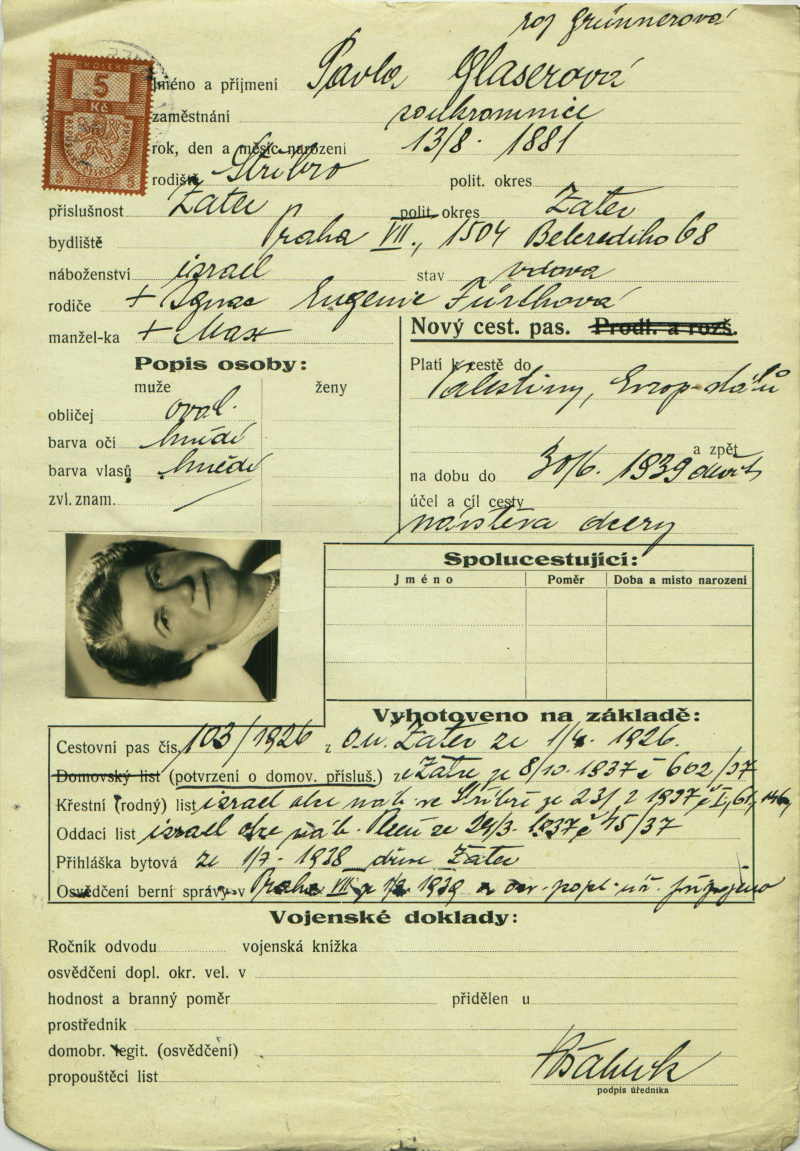 roz Grünnerová
5
Kč
Jméno a příjmení Pavla Glaserová
zaměstnání soukromnice
rok, den a měsíc narození 13/8. 1881
rodiště Stříbro polit. okres
příslušnost Žatec polit. okres Žatec
bydliště Praha VII., 1504 Belcrediho 68
náboženství izrael stav vdova
rodiče + Ignac Eugenie Fürthová
manžel-ka + Max
Nový cest. pas. Prodl. a rozš.
Popis osoby:
muže ženy
obličej oval.
barva očí hnědé
barva vlasů hnědé
zvl. znam.
Platí k cestě do
Palestiny, Evrop. států
a zpět
na dobu do 30/6. 1939
účel a cíl cesty
návštěva dcery
Spolucestující:
Jméno Poměr Doba a místo narození
Vyhotoveno na základě:
Cestovní pas čís. 103/1926 z o.ú. Žatec ze 1926.
Domovský list (potvrzení o domov. přísluš.) z Žatec 8/10. 1937 č 602/37
Křestní (rodný) list izrael obce náb. ve Stříbře ze 23/2 1897
Oddací list izrael obce náb. ze 29/3. 1937 č 45/37
Přihláška bytová ze 1/7. 1938 Žatec
Osvědčení berní správy v Praha VII 1939
Vojenské doklady:
Ročník odvodu vojenská knížka
osvědčení dopl. okr. vel. v
hodnost a branný poměr přidělen u
prostředník
domobr. legit. (osvědčení)
propouštěcí list
podpis úředníka